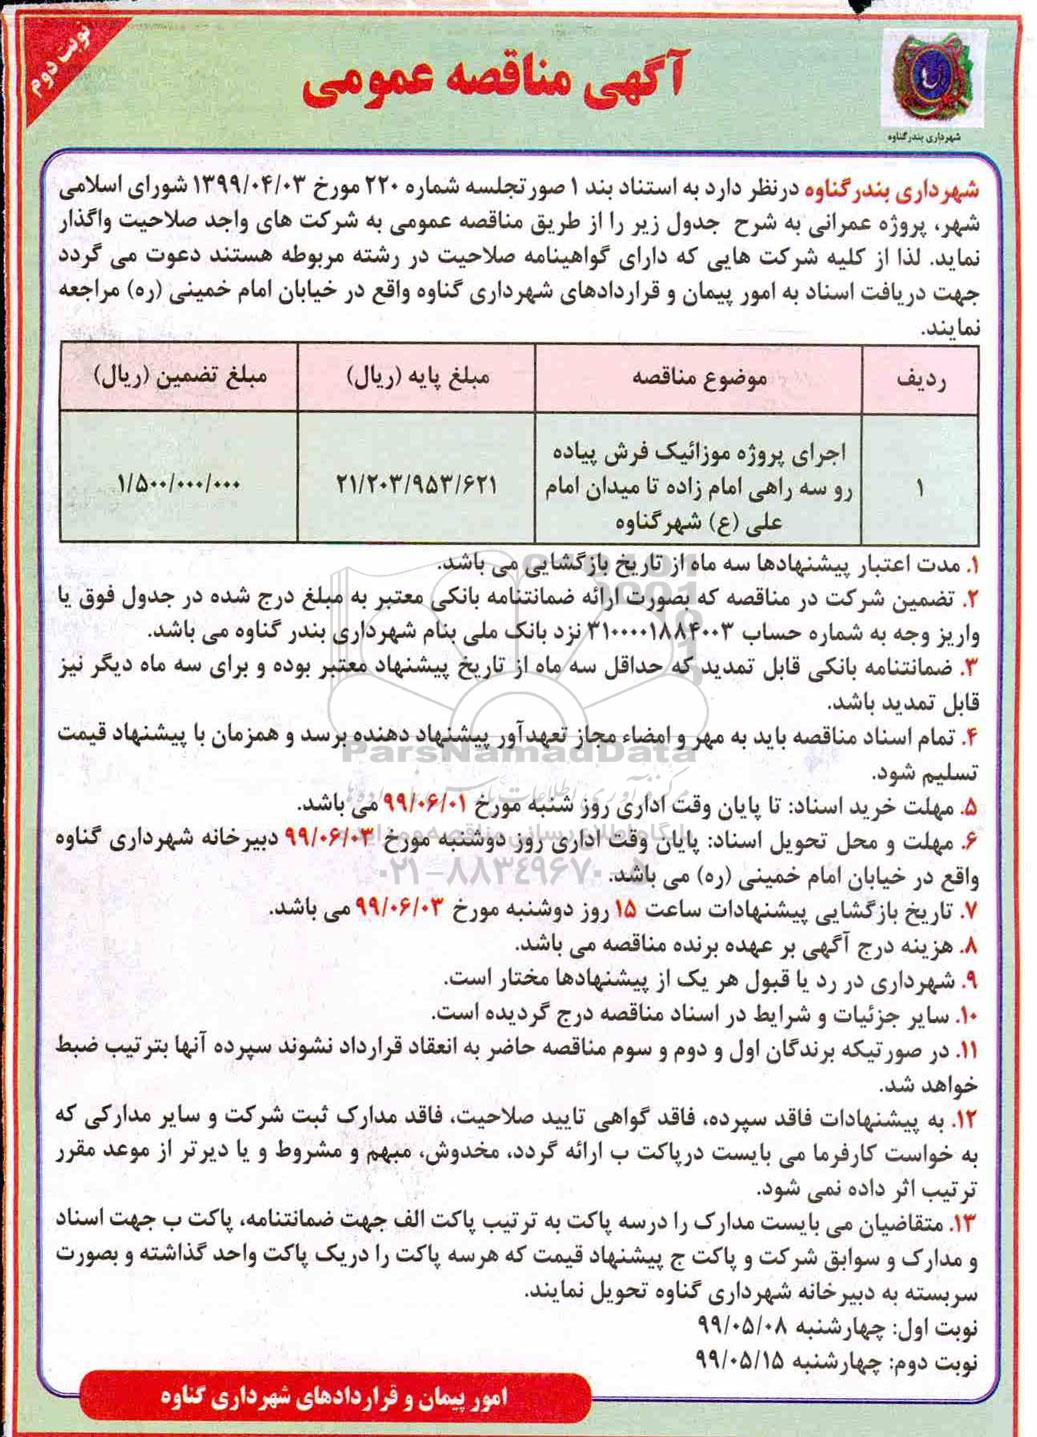 نوبت دوم
آگهی مناقصه عمومی
شهرداری بندرگناوه
شهرداری بندرگناوه درنظر دارد به استناد بند ۱ صورتجلسه شماره ۲۲۰ مورخ ۱۳۹۹/۰۴/۰۳ شورای اسلامی
شهر، پروژه عمرانی به شرح جدول زیر را از طریق مناقصه عمومی به شرکت های واجد صلاحیت واگذار
نماید. لذا از کلیه شرکت هایی که دارای گواهینامه صلاحیت در رشته مربوطه هستند دعوت می گردد
جهت دریافت اسناد به امور پیمان و قراردادهای شهرداری گناوه واقع در خیابان امام خمینی (ره) مراجعه
نمایند.
ردیف موضوع مناقصه مبلغ پایه (ریال) مبلغ تضمین (ریال)
اجرای پروژه موزائیک فرش پیاده
۱ رو سه راهی امام زاده تا میدان امام ۲۱/۲۰۳/۹۵۳/۶۲۱ ۱/۵۰۰/۰۰۰/۰۰۰
علی (ع) شهرگناوه
۱. مدت اعتبار پیشنهادها سه ماه از تاریخ بازگشایی می باشد.
۲. تضمین شرکت در مناقصه که بصورت ارائه ضمانتنامه بانکی معتبر به مبلغ درج شده در جدول فوق یا
واریز وجه به شماره حساب ۳۱۰۰۰۰۱۸۸۴۰۰۳ نزد بانک ملی بنام شهرداری بندر گناوه می باشد.
۳. ضمانتنامه بانکی قابل تمدید که حداقل سه ماه از تاریخ پیشنهاد معتبر بوده و برای سه ماه دیگر نیز
قابل تمدید باشد.
۴. تمام اسناد مناقصه باید به مهر و امضاء مجاز تعهدآور پیشنهاد دهنده برسد و همزمان با پیشنهاد قیمت
ParsNamadData
تسلیم شود.
۵. مهلت خرید اسناد: تا پایان وقت اداری روز شنبه مورخ ۹۹/۰۶/۰۱ می باشد.
پایگاه اطلاع رسانی مناقصه و مزایده
۶. مهلت و محل تحویل اسناد: پایان وقت اداری روز دوشنبه مورخ ۹۹/۰۶/۰۳ دبیرخانه شهرداری گناوه
واقع در خیابان امام خمینی (ره) می باشد.
۰۲۱-۸۸۳۴۹۶۷۰-۵
۷. تاریخ بازگشایی پیشنهادات ساعت ۱۵ روز دوشنبه مورخ ۹۹/۰۶/۰۳ می باشد.
۸. هزینه درج آگهی بر عهده برنده مناقصه می باشد.
۹. شهرداری در رد یا قبول هر یک از پیشنهادها مختار است.
۱۰. سایر جزئیات و شرایط در اسناد مناقصه درج گردیده است.
۱۱. در صورتیکه برندگان اول و دوم و سوم مناقصه حاضر به انعقاد قرارداد نشوند سپرده آنها بترتیب ضبط
خواهد شد.
۱۲. به پیشنهادات فاقد سپرده، فاقد گواهی تایید صلاحیت، فاقد مدارک ثبت شرکت و سایر مدارکی که
به خواست کارفرما می بایست درپاکت ب ارائه گردد، مخدوش، مبهم و مشروط و یا دیرتر از موعد مقرر
ترتیب اثر داده نمی شود.
۱۳. متقاضیان می بایست مدارک را درسه پاکت به ترتیب پاکت الف جهت ضمانتنامه، پاکت ب جهت اسناد
و مدارک و سوابق شرکت و پاکت ج پیشنهاد قیمت که هرسه پاکت را دریک پاکت واحد گذاشته و بصورت
سربسته به دبیرخانه شهرداری گناوه تحویل نمایند.
نوبت اول: چهارشنبه ۹۹/۰۵/۰۸
نوبت دوم: چهارشنبه ۹۹/۰۵/۱۵
امور پیمان و قراردادهای شهرداری گناوه